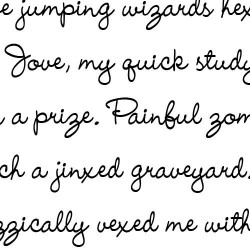 e jumping wizards hex
Jove, my quick study
a prize. Painful zom
ch a jinxed graveyard.
zzically vexed me with